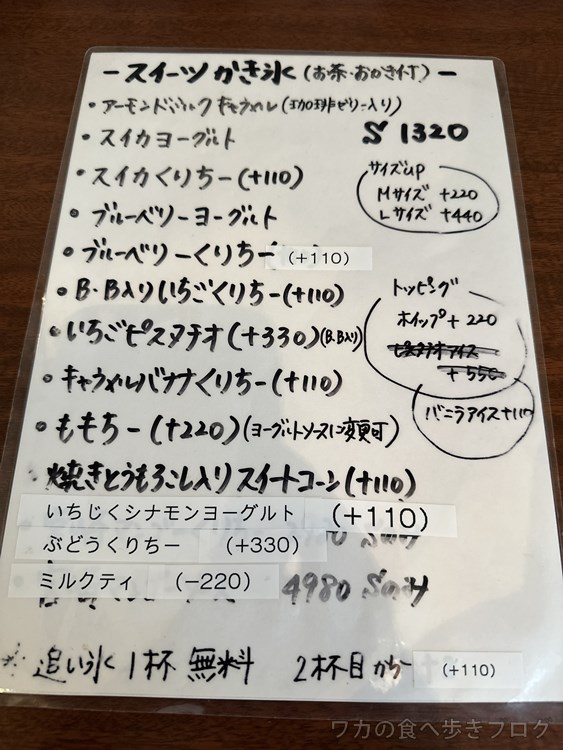 ースイーツかき氷(お茶・おかき付)ー
・アーモンドミルクキャラメル(珈琲ゼリー入り)
・スイカヨーグルト
S 1320
・スイカくりちー(+110)
サイズup
Mサイズ +220
Lサイズ +440
・ブルーベリーヨーグルト
・ブルーベリーくりちー (+110)
・B・B入りいちごくりちー(+110)
トッピング
ホイップ+220
ピスタチオアイス
+550
バニラアイス+110
・いちごピスタチオ(+330)(B.B入り)
・キャラメルバナナくりちー(+110)
・ももちー(+220)(ヨーグルトソースに変更可)
・焼きとうもろこし入りスイートコーン(+110)
いちじくシナモンヨーグルト (+110)
ぶどうくりちー (+330)
ミルクティ (−220) 4980 Sのみ
※追い氷1杯無料 2杯目から (+110)
ワカの食べ歩きブログ